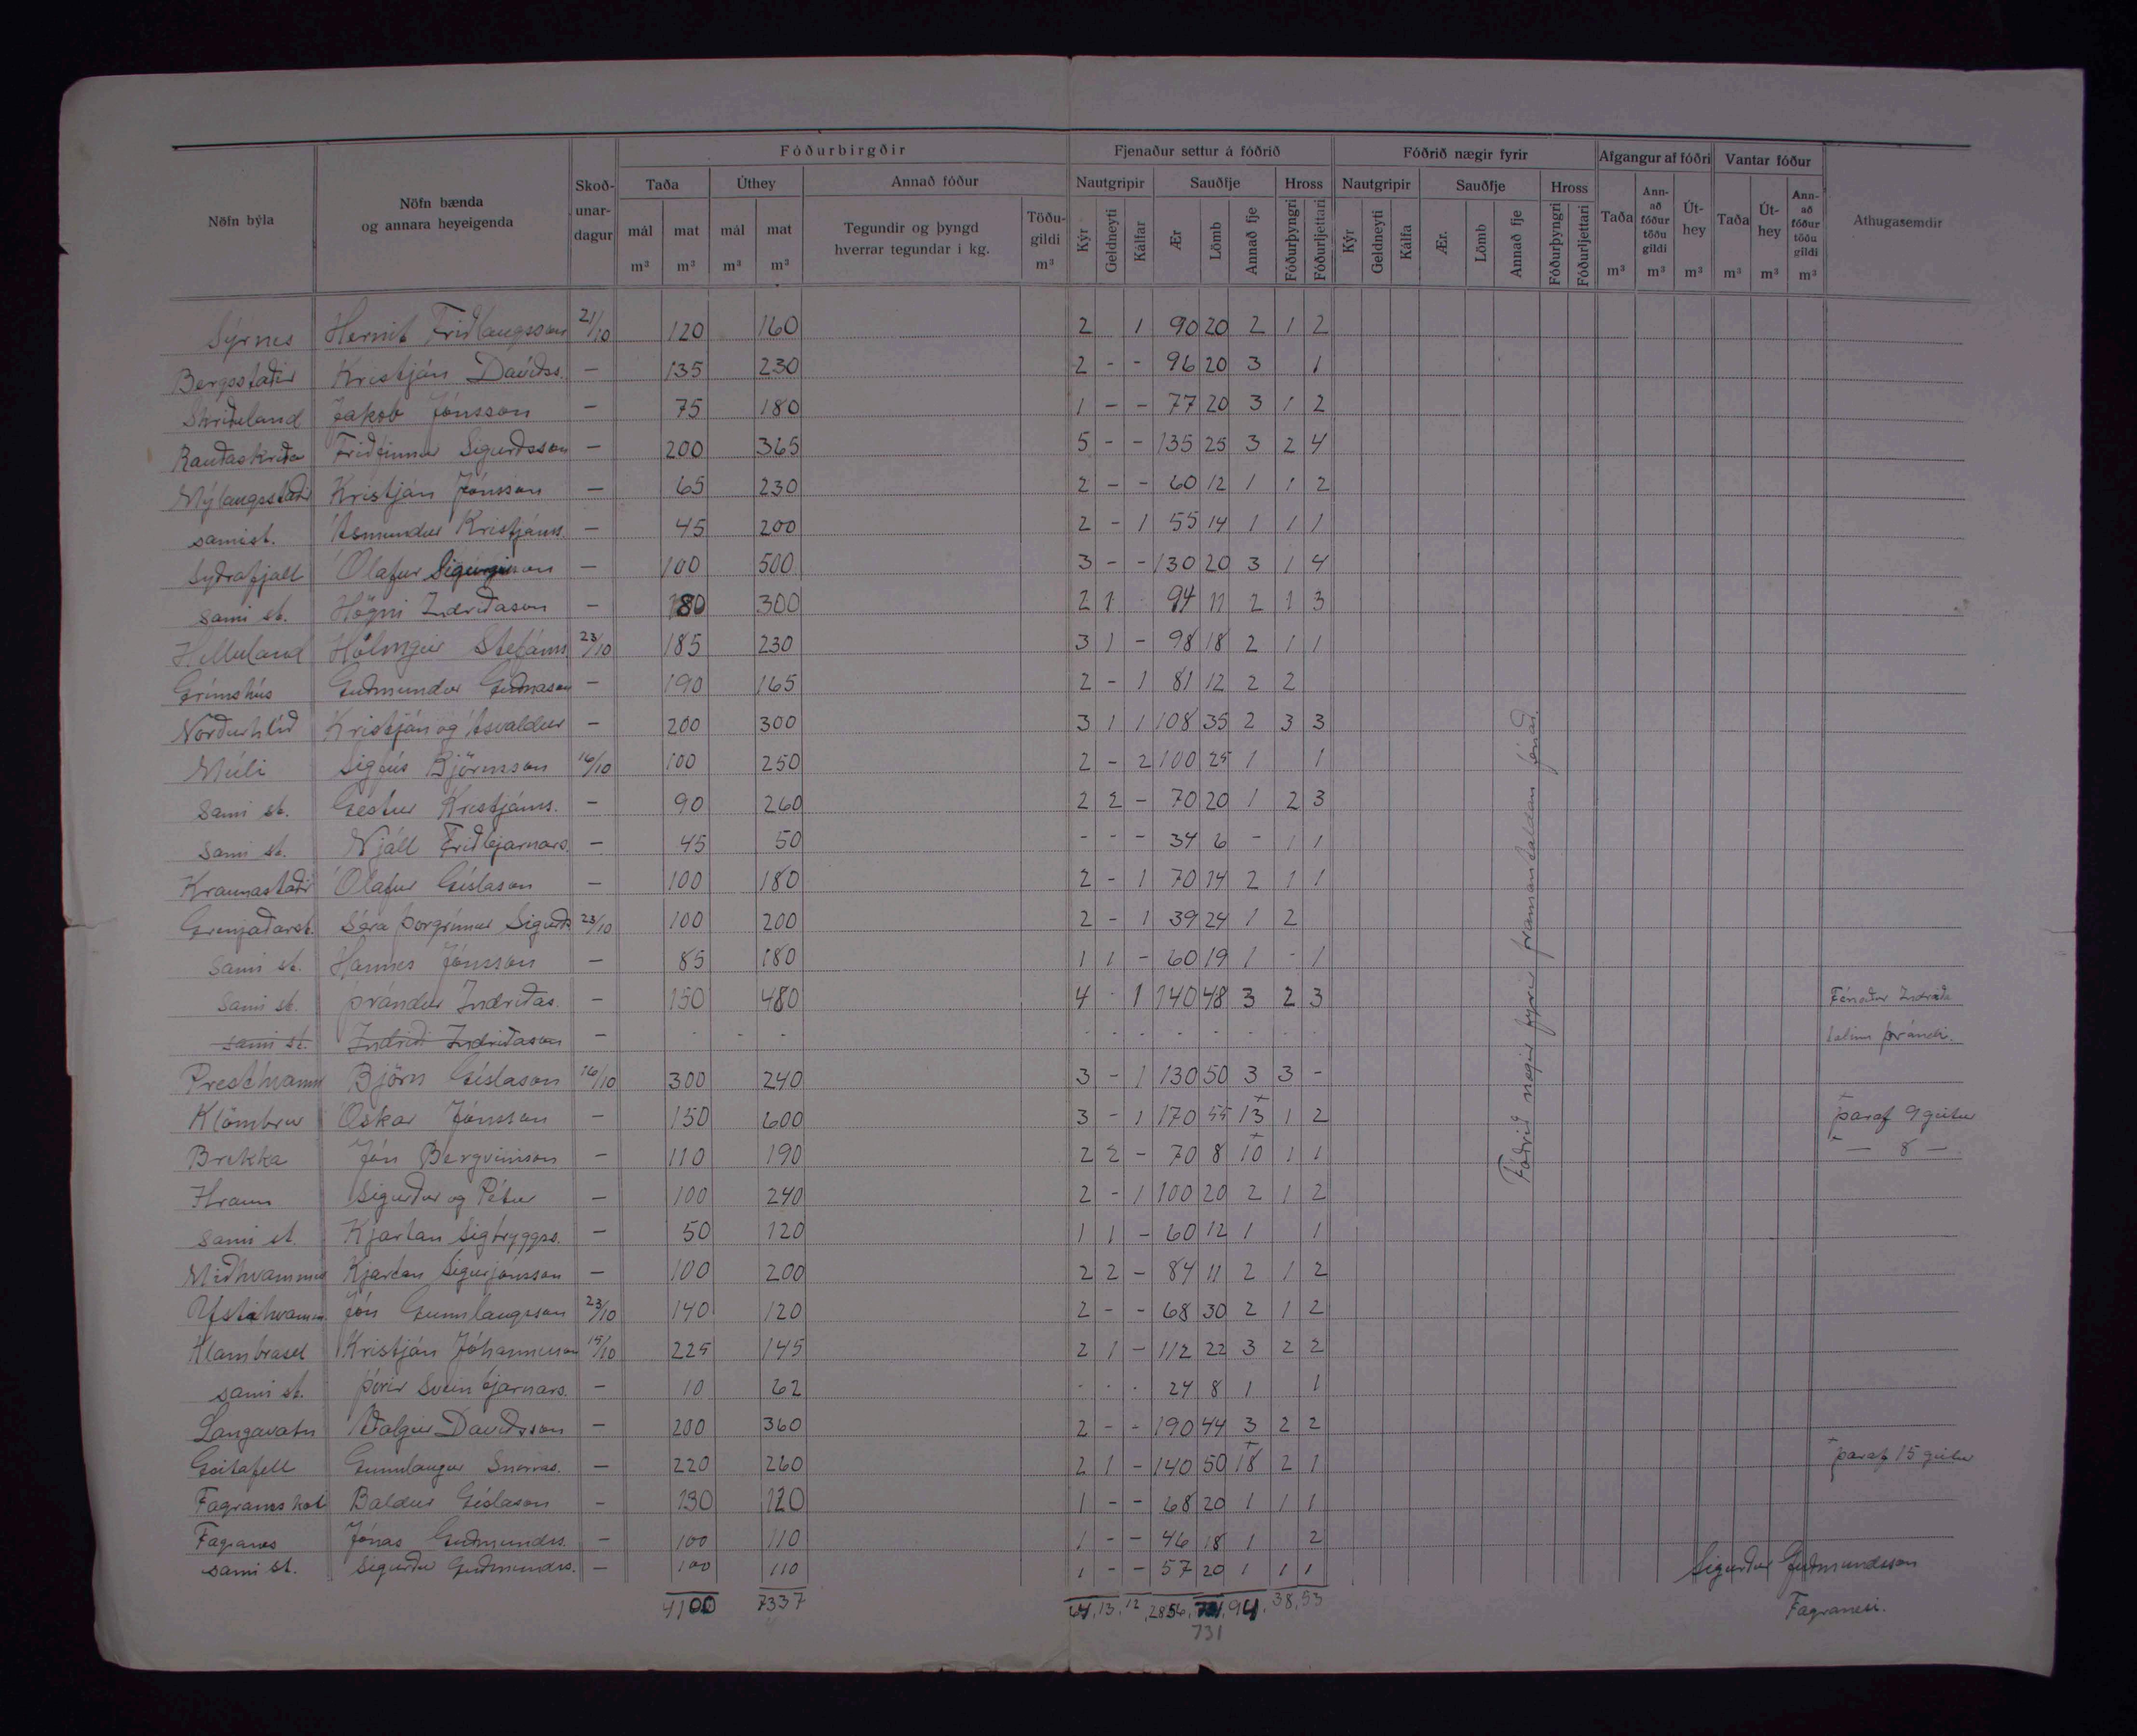 Fóðurbirgðir Fjenaður settur á fóðrið Fóðrið nægir fyrir Afgangur af fóðri Vantar fóður
Nöfn býla Nöfn bænda og annara heyeigenda Skoðunardagur Taða Úthey Annað fóður Nautgripir Sauðfje Hross Nautgripir Sauðfje Hross Taða Annað fóður töðu gildi Úthey Taða Úthey Annað fóður töðu gildi Athugasemdir
mál mat mál mat Tegundir og þyngd hverrar tegundar í kg. Töðugildi Kýr Geldneyti Kálfar Ær Lömb Annað fje Fóðurþyngri Fóðurljettari Kýr Geldneyti Kálfa Ær. Lömb Annað fje Fóðurþyngri Fóðurljettari
m³ m³ m³ m³ m³ m³ m³ m³ m³ m³ m³
Sýrnes Hernit Friðlaugsson 21/10 120 160 2 1 90 20 2 1 2
Bergsstaðir Kristján Davíðss. – 135 230 2 - - 96 20 3 1
Skriðuland Jakob Jónsson – 75 180 1 - - 77 20 3 1 2
Rauðaskriða Friðfinnur Sigurðsson – 200 365 5 - - 135 25 3 2 4
Mýlaugsstaðir Kristján Jónsson – 65 230 2 - - 60 12 1 1 2
sami st. Ásmundur Kristjáns. – 45 200 2 - 1 55 14 1 1 1
Syðrafjall Ólafur Sigurgeirsson – 100 500 3 - - 130 20 3 1 4
sami st. Högni Indriðason – 180 300 2 1 94 11 2 1 3
Helluland Hólmgeir Stefáns 23/10 185 230 3 1 - 98 18 2 1 1
Grímshús Guðmundur Guðnason – 190 165 2 - 1 81 12 2 2
Norðurhlíð Kristján og Ásvaldur – 200 300 3 1 1 108 35 2 3 3
Múli Sigfús Björnsson 16/10 100 250 2 - 2 100 25 1 1
Sami st. Gestur Kristjáns. – 90 260 2 2 - 70 20 1 2 3
Sami st. Njáll Friðbjarnars. – 45 50 - - - 34 6 - 1 1
Kraunastaðir Ólafur Gíslason – 100 180 2 - 1 70 14 2 1 1
Grenjaðarst. Séra Þorgrímur Sigurðs 23/10 100 200 2 - 1 39 24 1 2
Sami st. Hannes Jónsson – 85 180 1 1 - 60 19 1 - 1
Sami st. Þrándur Indriðas. – 150 480 4 - 1 140 48 3 2 3 Fénaður Indriða
sami st. Indriði Indriðason – - - - - - - - - - - - talinn Þrándi.
Presthvamm Björn Gíslason 16/10 300 240 3 - 1 130 50 3 3 -
Klömbrur Óskar Jónsson – 150 600 3 - 1 170 55 13+ 1 2 + þaraf 9 geitur
Brekka Jón Bergvinsson – 110 190 2 2 - 70 8 10+ 1 1 + — 8 —
Hraun Sigurður og Pétur – 100 240 2 - 1 100 20 2 1 2
Sami st. Kjartan Sigtryggss. – 50 120 1 1 - 60 12 1 1
Miðhvammur Kjartan Sigurjónsson – 100 200 2 2 - 84 11 2 1 2
Ystihvamm. Jón Gunnlaugsson 23/10 140 120 2 - - 68 30 2 1 2
Klambrasel Kristján Jóhannesson 15/10 225 145 2 1 - 112 22 3 2 2
sami st. Þórir Sveinbjarnars. – 10 62 - - - 24 8 1 1
Langavatn Aðalgeir Davíðsson – 200 360 2 - - 190 44 3 2 2
Geitafell Gunnlaugur Snorras. – 220 260 2 1 - 140 50 18+ 2 1 + þaraf 15 geitur
Fagranes kot Baldur Gíslason – 130 120 1 - - 68 20 1 1 1
Fagranes Jónas Guðmundss. – 100 110 1 - - 46 18 1 2
sami st. Sigurður Guðmundss. – 100 110 1 - - 57 20 1 1 1
4100 7337 64, 13, 12, 2856, 94, 38, 53
731
Fóðrið nægir fyrir framantaldan fénað.
Sigurður Guðmundsson
Fagranesi.